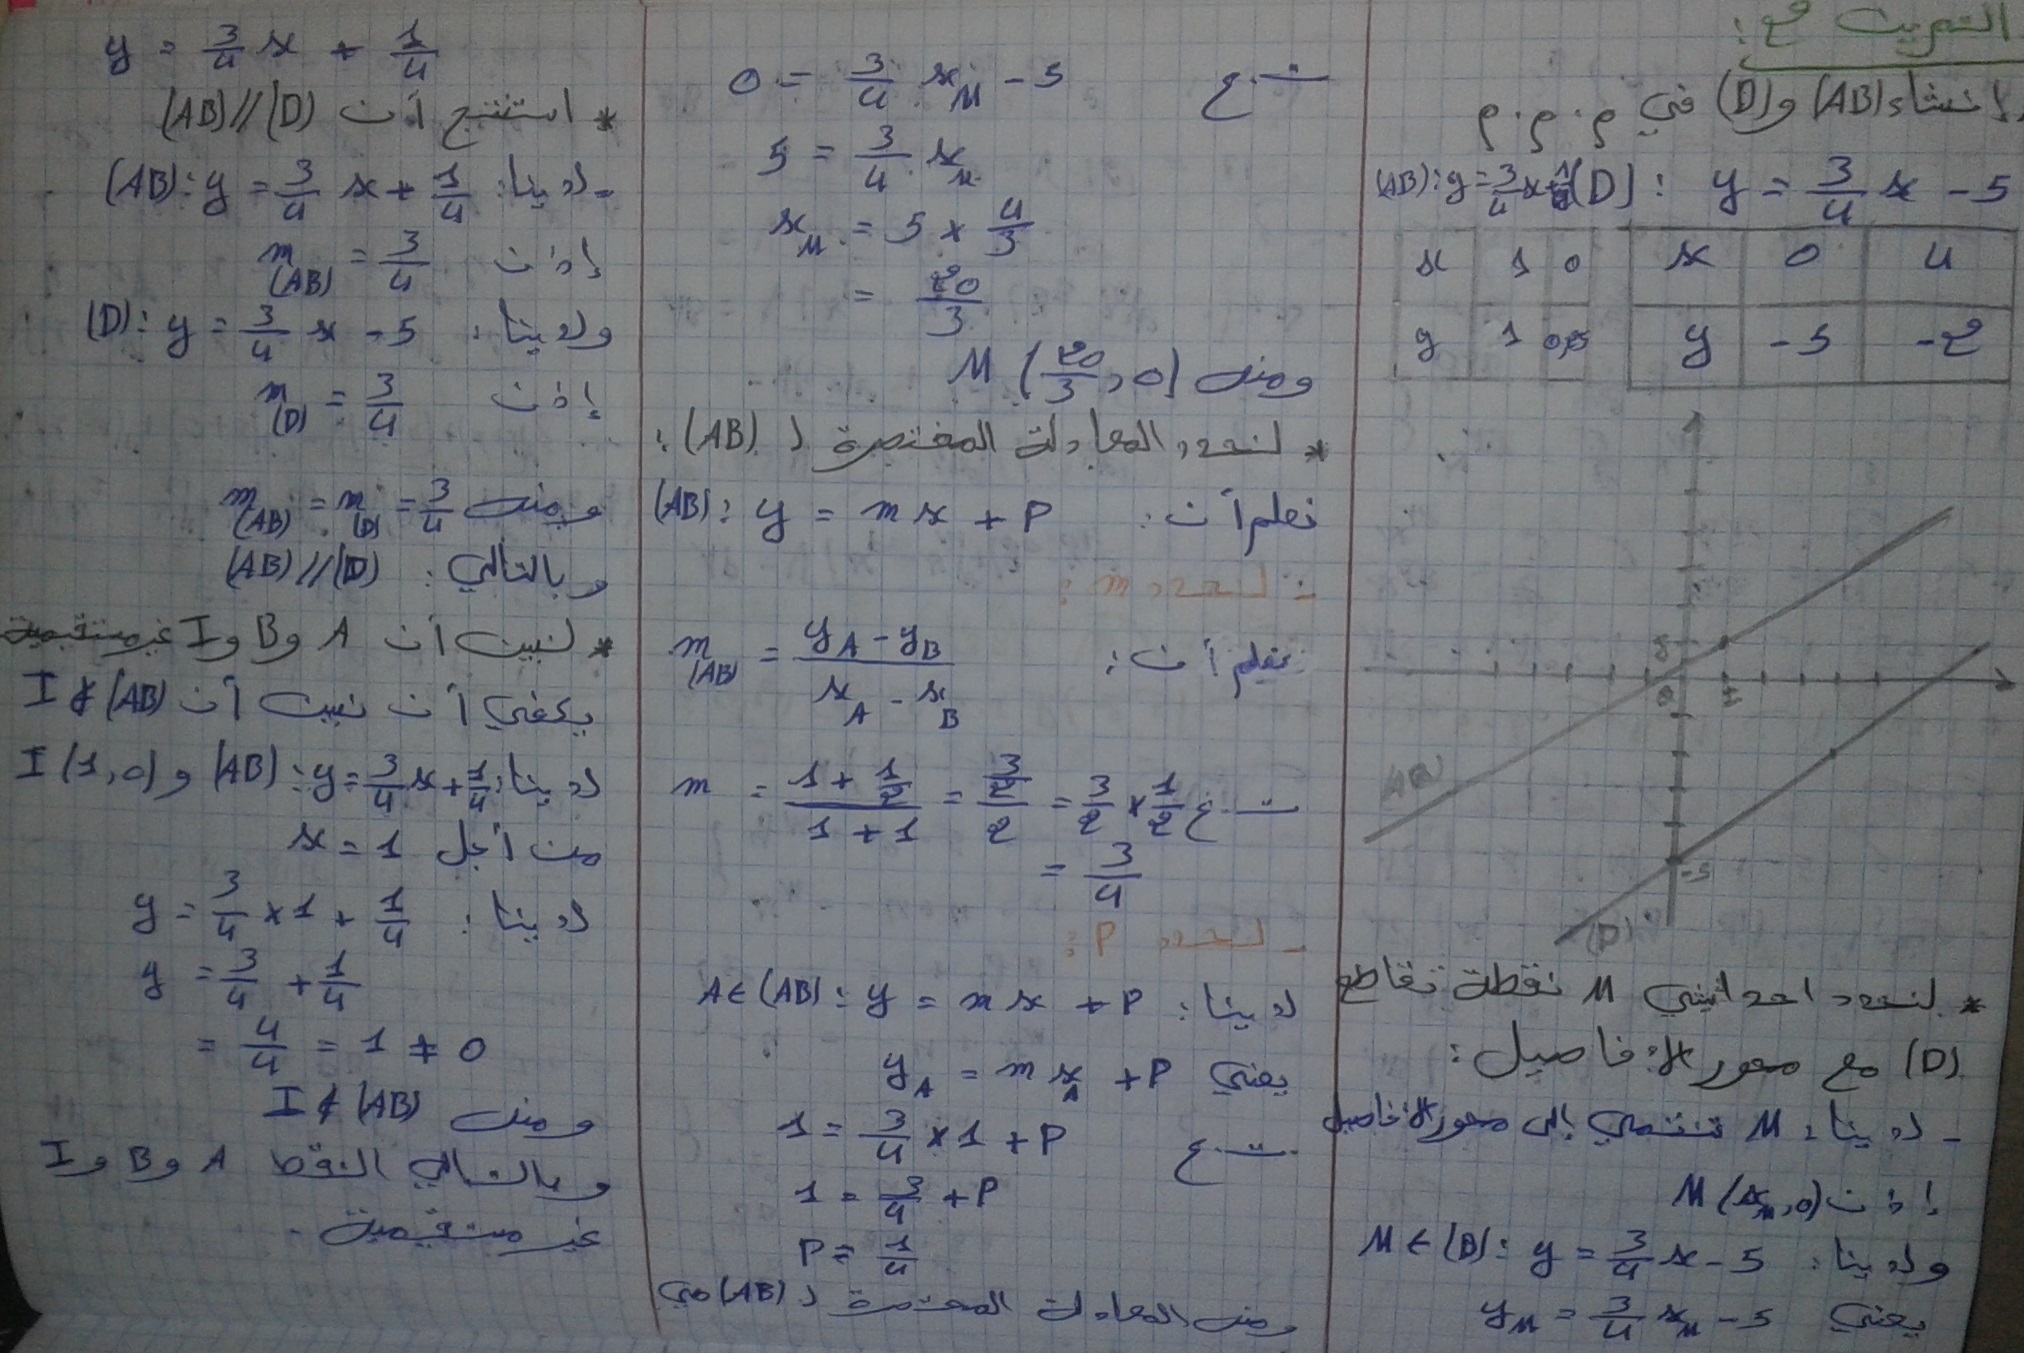 التمرين 4:
إنشاء (AB) و (D) في م.م.م
(AB): y = 3/4 x + 1/4 (D): y = 3/4 x - 5
x 1 0
y 1
x 0 4
y -5 -2
(AB)
-5
(D)
* لنحدد احداثيتي M نقطة تقاطع
(D) مع محور الأفاصيل:
- لدينا: M تنتمي إلى محور الأفاصيل
إذن M(x_M, 0)
ولدينا: M ∈ (D): y = 3/4 x - 5
يعني y_M = 3/4 x_M - 5
ت.ع 0 = 3/4 x_M - 5
5 = 3/4 x_M
x_M = 5 × 4/3
= 20/3
ومنه M(20/3, 0)
* لنحدد المعادلة المختصرة ل (AB):
نعلم أن: (AB): y = mx + P
- لنحدد m:
نعلم أن: m_(AB) = (y_A - y_B)/(x_A - x_B)
ت.ع m = (1 + 1/2)/(1 + 1) = (3/2)/2 = 3/2 × 1/2
= 3/4
- لنحدد P:
لدينا: A ∈ (AB): y = mx + P
يعني y_A = m x_A + P
ت.ع 1 = 3/4 × 1 + P
1 = 3/4 + P
P = 1/4
ومنه المعادلة المختصرة ل (AB) هي
y = 3/4 x + 1/4
* استنتج أن (AB) // (D)
- لدينا: (AB): y = 3/4 x + 1/4
إذن m_(AB) = 3/4
ولدينا: (D): y = 3/4 x - 5
إذن m_(D) = 3/4
ومنه m_(AB) = m_(D) = 3/4
وبالتالي: (AB) // (D)
* لنبين أن A و B و I غير مستقيمية
يكفي أن نبين أن I ∉ (AB)
لدينا: (AB): y = 3/4 x + 1/4 و I(1, 0)
من أجل x = 1
لدينا: y = 3/4 × 1 + 1/4
y = 3/4 + 1/4
= 4/4 = 1 ≠ 0
ومنه I ∉ (AB)
وبالتالي النقط A و B و I
غير مستقيمية.